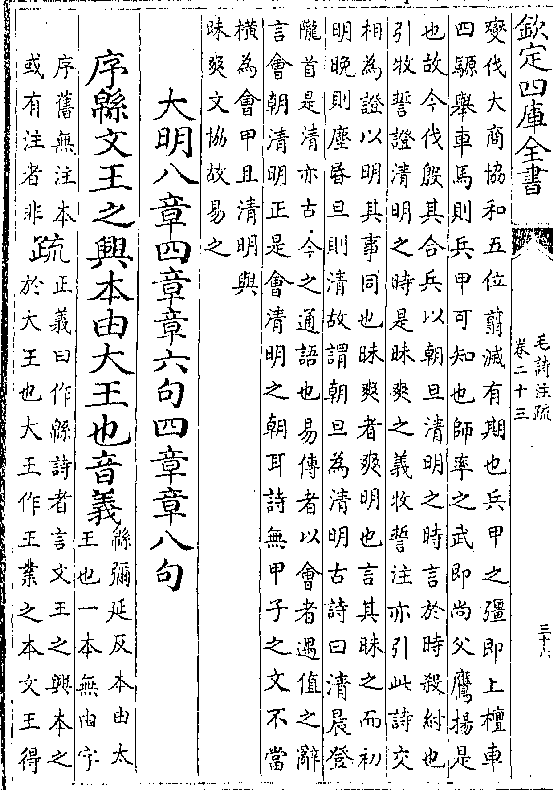 欽定四庫全書
毛詩注疏
卷二十三
三十六
變伐大商協和五位翦滅有期也兵甲之彊即上檀車
四騵舉車馬則兵甲可知也師率之武即尚父鷹揚是
也故今伐殷其合兵以朝旦清明之時言於時殺紂也
引牧誓證清明之時是昧爽之義牧誓注亦引此詩交
相為證以明其事同也昧爽者爽明也言其昧之而初
明晚則塵昏旦則清故謂朝旦為清明古詩曰清晨登
隴首是清亦古今之通語也易傳者以會者遇值之辭
言會朝清明正是會清明之朝耳詩無甲子之文不當
横為會甲且清明與
昧爽文協故易之
大明八章四章章六句四章章八句
序緜文王之興本由大王也音義
緜彌延反本由太
王也一本無由字
序舊無注本
或有注者非
疏
正義曰作緜詩者言文王之興本之
於大王也大王作王業之本文王得